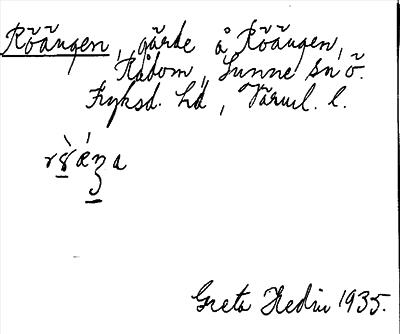 Röängen, gärde å Röängen,
Rådom, Sunne sn ö.
Fryksd. hd, Värml. l.
Greta Hedin 1935.